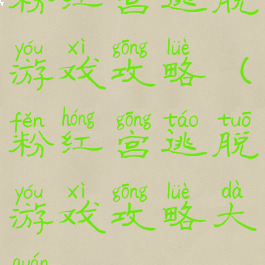 粉红宫逃脱
yóu xì gōng lüè
游戏攻略（
fěn hóng gōng táo tuō
粉红宫逃脱
yóu xì gōng lüè dà
游戏攻略大
quán